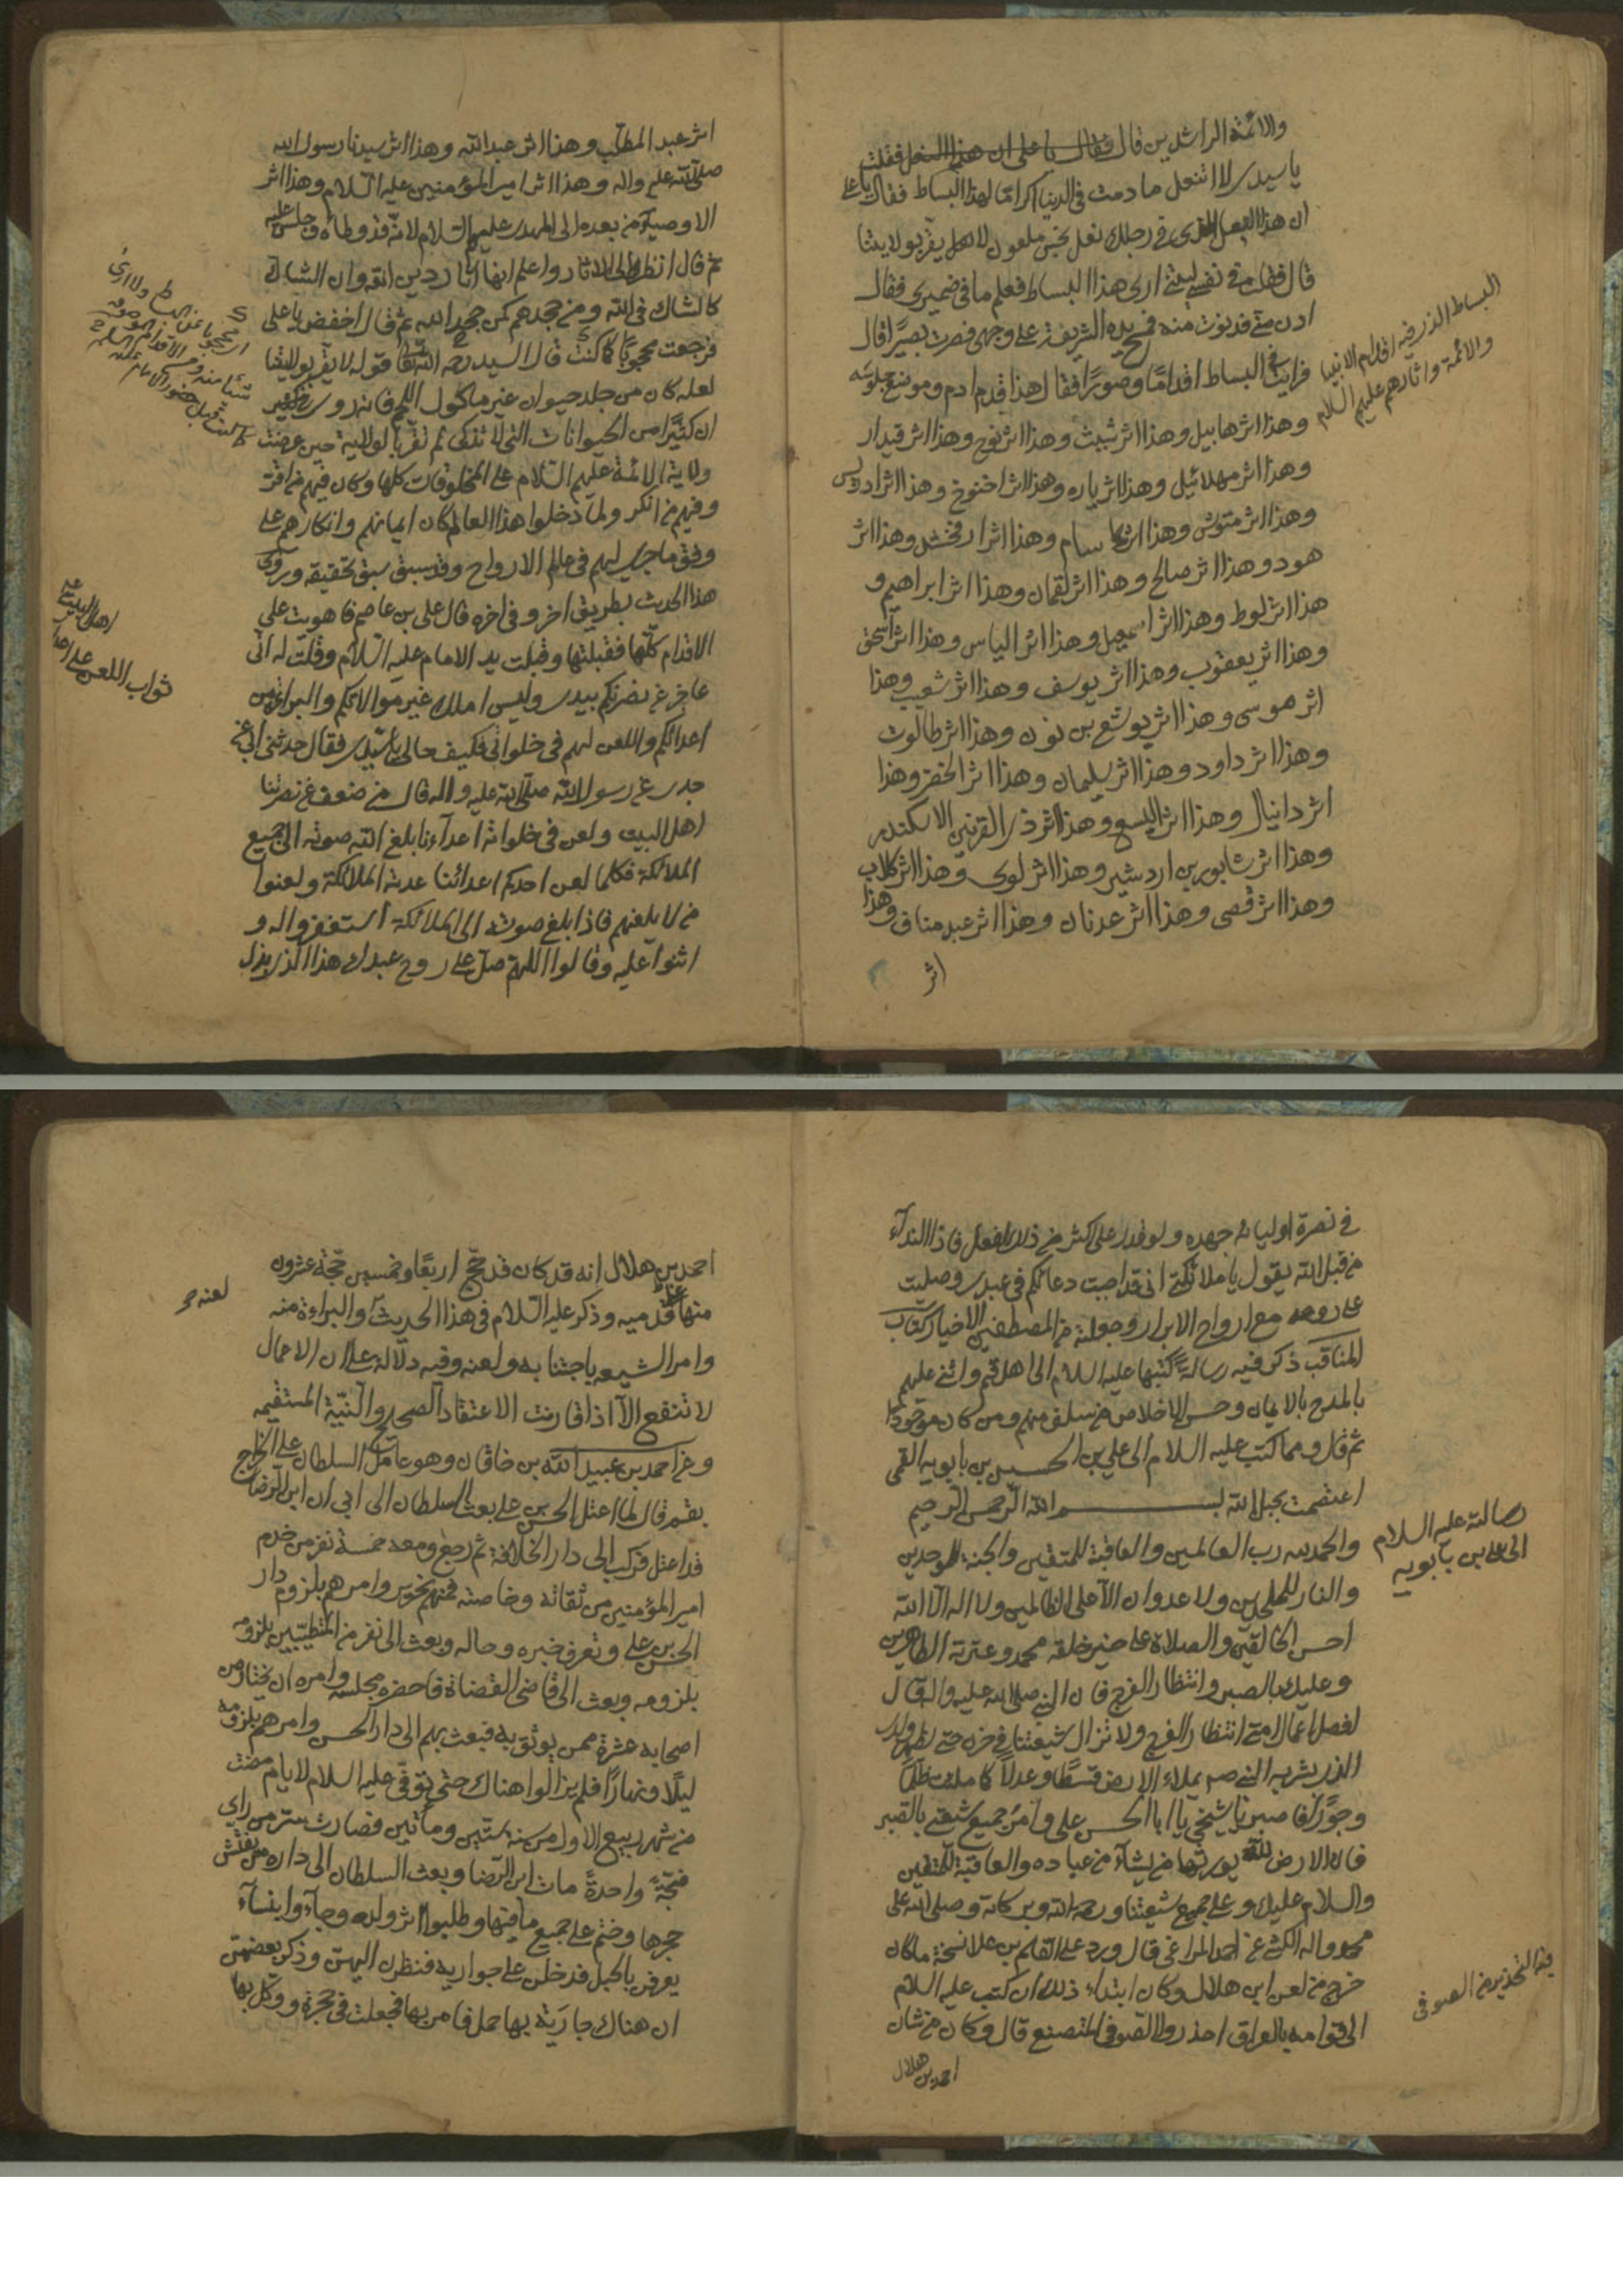 والائمة الراشدين قال فقال يا على ان هذا النعل فقلت
يا سيدى لا اتنعل ما دمت فى الدنيا اكراما لهذا البساط فقال يا على
ان هذا النعل الذى فى رجلك نعل نجس ملعون لا يقر بولايتنا
قال فقلت فى نفسى ليتنى ارى هذا البساط فعلم ما فى ضميرى فقال
ادن منى فدنوت منه فمسح يده الشريفة على وجهى فصرت بصيرا قال
فرايت فى البساط اقداما وصورا فقال هذا قدم ادم وموضع جلوسه
وهذا اثر هابيل وهذا اثر شيث وهذا اثر نوح وهذا اثر قيدار
وهذا اثر مهلائيل وهذا اثر ياره وهذا اثر اخنوخ وهذا اثر ادريس
وهذا اثر متوشلخ وهذا اثر سام وهذا اثر ارفخشد وهذا اثر
هود وهذا اثر صالح وهذا اثر لقمان وهذا اثر ابراهيم و
هذا اثر لوط وهذا اثر اسمعيل وهذا اثر الياس وهذا اثر اسحق
وهذا اثر يعقوب وهذا اثر يوسف وهذا اثر شعيب وهذا
اثر موسى وهذا اثر يوشع بن نون وهذا اثر طالوت
وهذا اثر داود وهذا اثر سليمان وهذا اثر الخضر وهذا
اثر دانيال وهذا اثر اليسع وهذا اثر ذى القرنين الاسكندر
وهذا اثر شابور بن اردشير وهذا اثر لوى وهذا اثر كلاب
وهذا اثر قصى وهذا اثر عدنان وهذا اثر عبد مناف وهذا
اثر
البساط الذى فيه اقدام الانبيا
والائمة واثارهم عليهم السلام
اثر عبد المطلب وهذا اثر عبد الله وهذا اثر سيدنا رسول الله
صلى الله عليه واله وهذا اثر امير المؤمنين عليه السلام وهذا اثر
الاوصياء من بعده الى المهدى عليهم السلام لانه قد وطأه وجلس عليه
ثم قال انظر الى الاثار واعلم انها اثار دين الله وان الشاك
كالشاك فى الله ومن جحدهم كمن جحد الله ثم قال اخفض يا على
فرجعت محجوبا كما كنت قال السيد رحمه الله قوله لا يقر بولايتنا
لعله كان من جلد حيوان غير ماكول اللحم فانه روى
ان كثيرا من الحيوانات التى لا تذكى لم تقر بالولاية حين عرضت
ولاية الائمة عليهم السلام على المخلوقات كلها وكان فيهم من اقر
وفيهم من انكر ولما دخلوا هذا العالم كان ايمانهم وانكارهم على
وفق ما جرى لهم فى عالم الارواح وقد سبق تحقيقه وروى
هذا الحديث بطريق اخر وفى اخره قال على بن عاصم فاهويت على
الاقدام كلها فقبلتها وقبلت يد الامام عليه السلام وقلت له انى
عاجز عن نصرتكم بيدى وليس املك غير موالاتكم والبراءة من
اعدائكم واللعن لهم فى خلواتى فكيف حالى يا سيدى فقال حدثنى ابى عن
جدى عن رسول الله صلى الله عليه واله قال من ضعف عن نصرتنا
اهل البيت ولعن فى خلواته اعداءنا بلغ الله صوته الى جميع
الملائكة فكلما لعن احدكم اعدائنا الملائكة ولعنوا
من لا يلعنهم فاذا بلغ صوته الى الملائكة استغفروا له و
اثنوا عليه وقالوا اللهم صل على روح عبدك هذا الذى بذل
ثواب اللعن على اعداء
اهل البيت ع
فى نصرة اوليائه جهده ولو قدر على اكثر من ذلك لفعل فاذا النداء
من قبل الله يقول يا ملائكتى انى قد اجبت دعائكم فى عبدى وصليت
على روحه مع ارواح الابرار وجعلته من المصطفين الاخيار كتاب
المناقب ذكر فيه رسالة كتبها عليه السلام الى اهل قم واثنى عليهم
بالمدح بالايمان وحسن الاخلاص من سلف منهم ومن كان موجودا
ثم قال ومما كتب عليه السلام الى على بن الحسين بن بابويه القمى
اعتصمت بحبل الله بسم الله الرحمن الرحيم
والحمد لله رب العالمين والعاقبة للمتقين والجنة للموحدين
والنار للملحدين ولا عدوان الا على الظالمين ولا اله الا الله
احسن الخالقين والصلاة على خير خلقه محمد وعترته الطاهرين
وعليك بالصبر وانتظار الفرج فان النبى صلى الله عليه واله قال
افضل اعمال امتى انتظار الفرج ولا تزال شيعتنا فى حزن حتى يظهر ولدى
الذى بشر به النبى ص يملاء الارض قسطا وعدلا كما ملئت ظلما
وجورا فاصبر يا شيخى يا ابا الحسن على وامر جميع شيعتى بالصبر
فان الارض لله يورثها من يشاء من عباده والعاقبة للمتقين
والسلام عليك وعلى جميع شيعتنا ورحمة الله وبركاته وصلى الله على
محمد واله الكشى عن احمد المراغى قال ورد على القاسم بن علا نسخة ما كان
خرج من لعن ابن هلال وكان ابتداء ذلك ان كتب عليه السلام
الى قوامه بالعراق احذروا الصوفى المتصنع قال وكان من شان
احمد بن هلال
رسالته عليه السلام
الى على بن بابويه
فيه التحذير من الصوفى
احمد بن هلال انه قد كان قد حج اربعا وخمسين حجة عشرون
منها على قدميه وذكر عليه السلام فى هذا الحديث والبراءة منه
وامر الشيعه باجتنابه ولعنه وفيه دلالة على ان الاعمال
لا تنفع الا اذا قارنت الاعتقاد الصحيح والنية المستقيمه
وعن احمد بن عبيد الله بن خاقان وهو عامل السلطان على الخراج
بقم قال لما اعتل الحسن بن على بعث السلطان الى ابى ان ابن الرضا
قد اعتل فركب الى دار الخلافة ثم رجع ومعه خمسة نفر من خدم
امير المؤمنين من ثقاته وخاصته فمنهم نحرير وامرهم بلزوم دار
الحسن بن على وتعرف خبره وحاله وبعث الى نفر من المتطببين بلزومه
بلزومه وبعث الى قاضى القضاة فاحضره مجلسه وامره ان يختار من
اصحابه عشرة ممن يوثق به فبعث بهم الى دار الحسن وامرهم بلزومه
ليلا ونهارا فلم يزالوا هناك حتى توفى عليه السلام لايام مضت
من شهر ربيع الاول من سنة ستين ومأتين فصارت سر من راى
ضجة واحدة مات ابن الرضا وبعث السلطان الى داره من يفتش
حجرها وختم على جميع ما فيها وطلبوا اثر ولده وجاءوا بنساء
يعرفن بالحبل فدخلن على جواريه فنظرن اليهن وذكر بعضهن
ان هناك جارية بها حمل فامر بها فجعلت فى حجرة ووكل بها